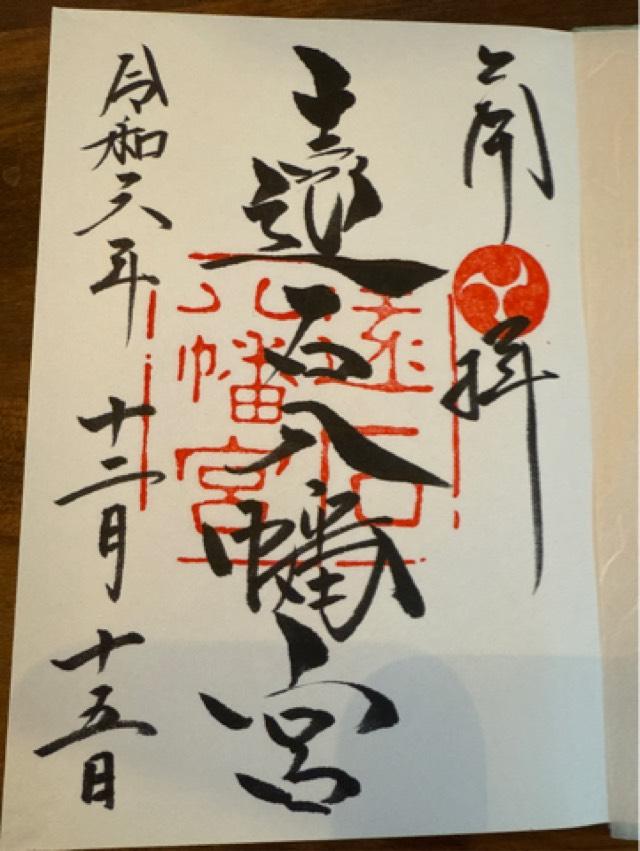 奉拝
遠石八幡宮
遠石八幡宮
令和六年十二月十五日